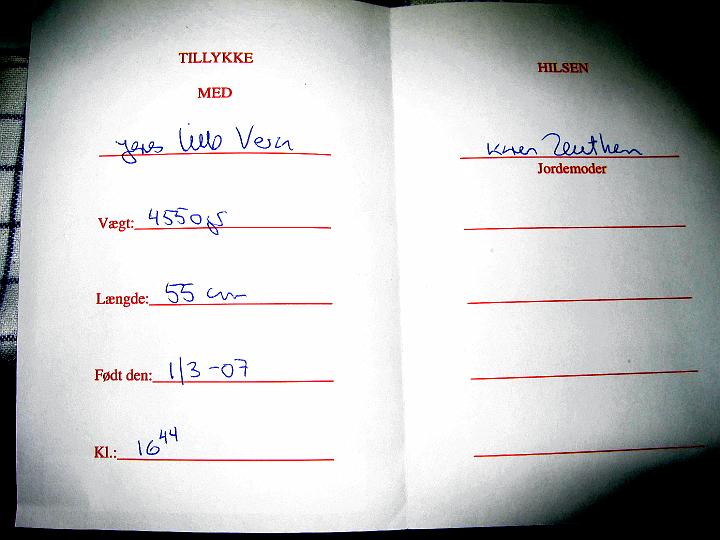 TILLYKKE
MED
jeres lille Vera
Vægt: 4550 gr
Længde: 55 cm
Født den: 1/3-07
Kl.: 16 44
HILSEN
Karen Zeuthen
Jordemoder